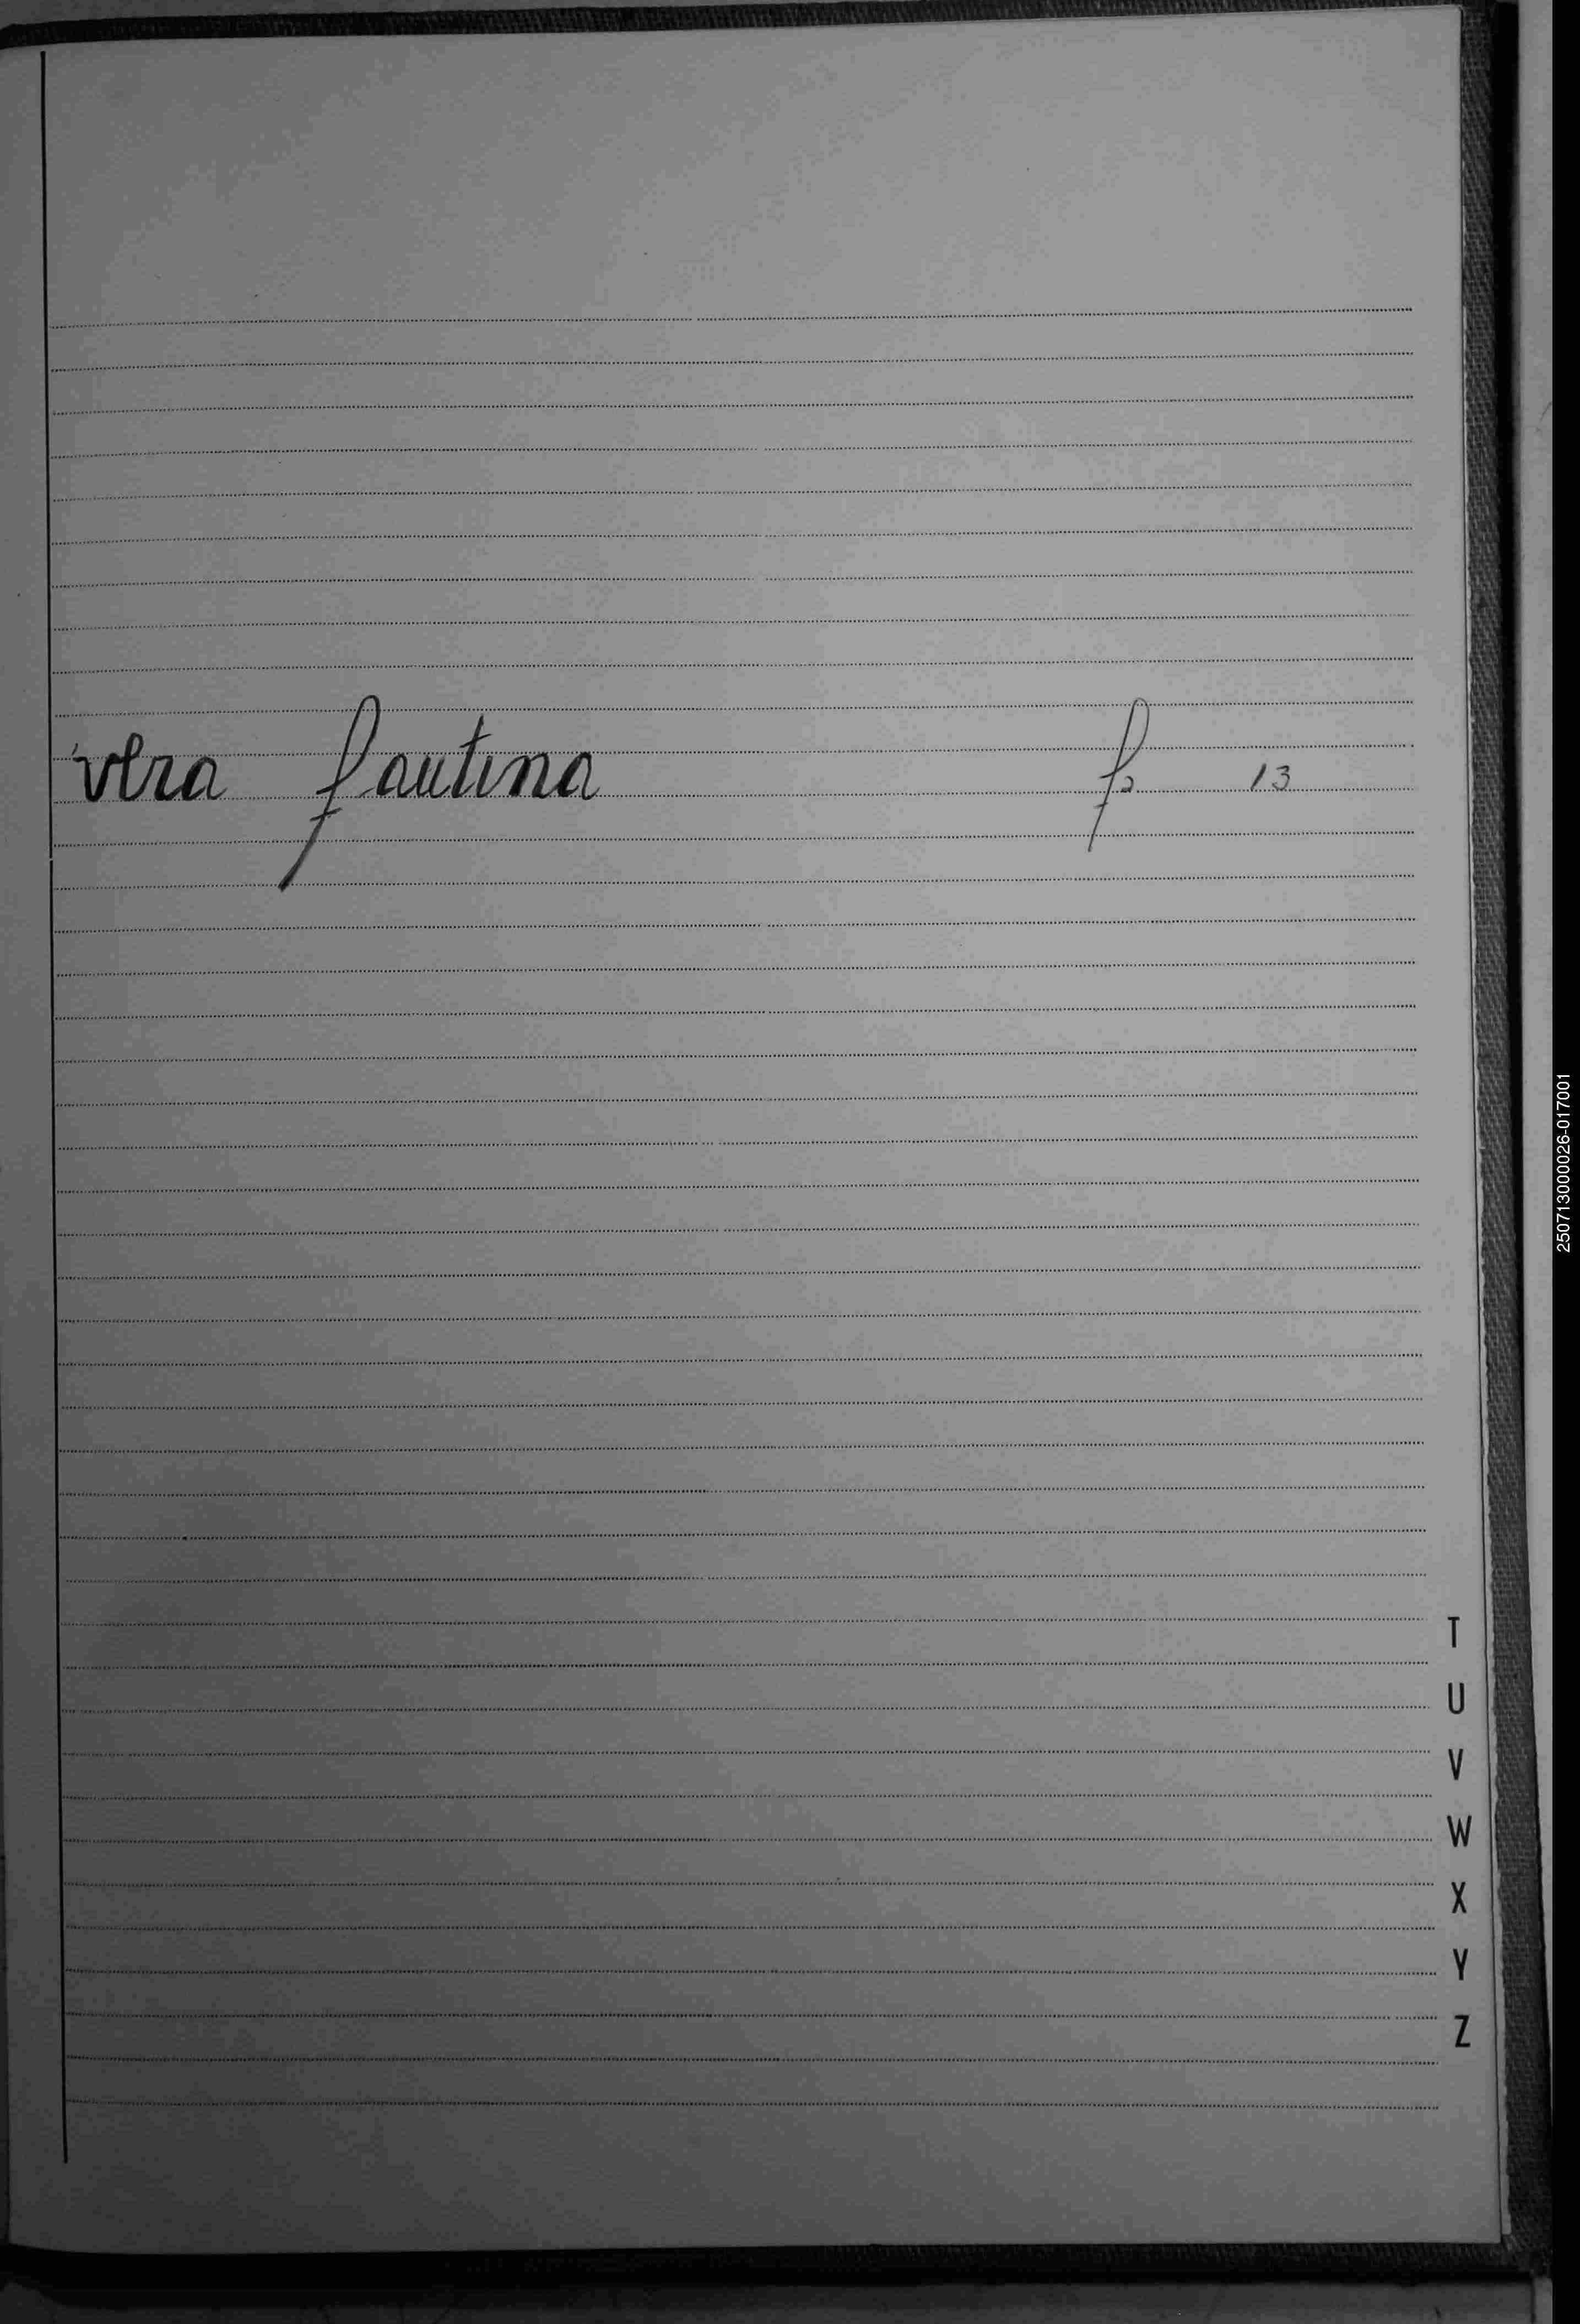 vera fautina fo 13
T
U
V
W
X
Y
Z
250713000026-017001